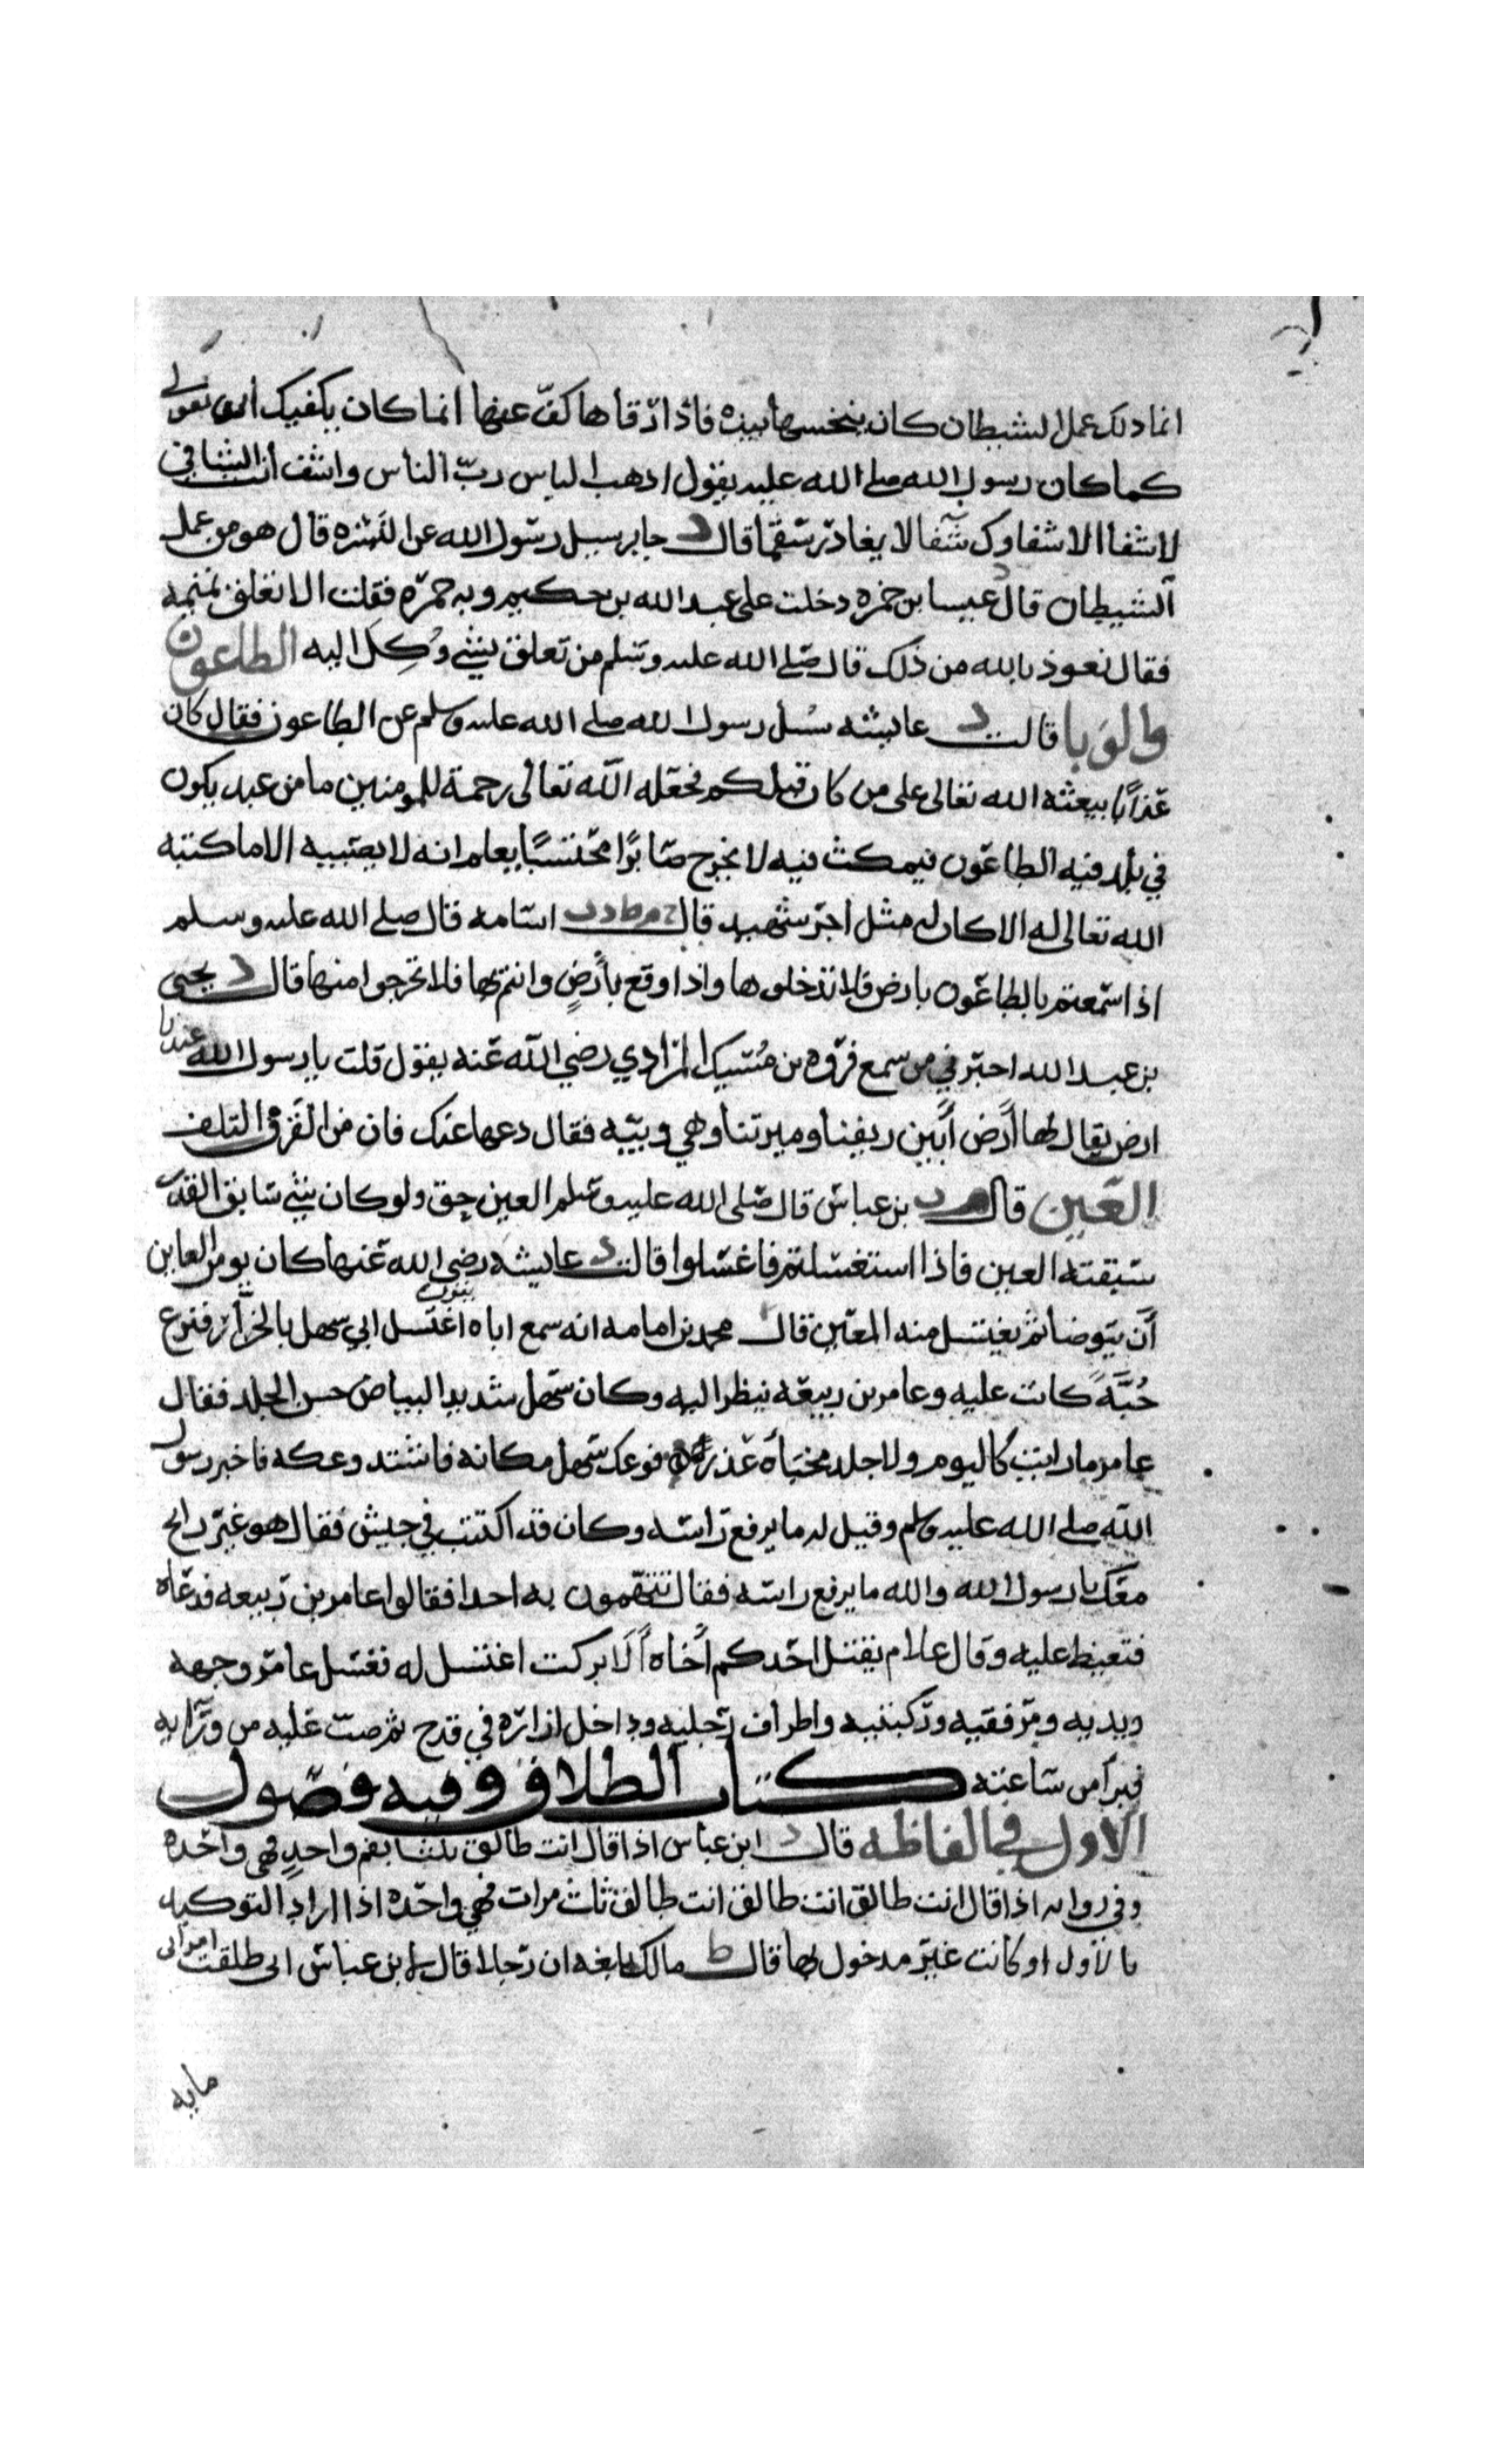 انما ذلك عمل الشيطان كان ينخسها بيده فاذا رقاها كف عنها انما كان يكفيك ان تقولي
كما كان رسول الله صلى الله عليه يقول اذهب الباس ربّ الناس واشف انت الشافي
لا شفا الا شفاوك شفا لا يغادر سقما قال د جابر سيل رسول الله عن النُشره قال هو من عمل
الشيطان قال د عيسا بن حمزه دخلت على عبد الله بن حكيم وبه حمره فقلت الا تعلق تميمه
فقال نعوذ بالله من ذلك قال صلى الله عليه وسلم من تعلق بشي وُكِلَ اليه الطاعون
والوبا قالت د عايشه سُئل رسول الله صلى الله عليه وسلم عن الطاعون فقال كان
عذابًا يبعثه الله تعالى على من كان قبلكم فجعله الله تعالى رحمة للمومنين ما من عبد يكون
في بلد فيه الطاعون فيمكث فيه لا يخرج صابرًا محتسبًا يعلم انه لا يصيبه الا ما كتبه
الله تعالى له الا كان له مثل اجر شهيد قال اسامه قال صلى الله عليه وسلم
اذا سمعتم بالطاعون بارض فلا تدخلوها واذا وقع بأرضٍ وانتم بها فلا تخرجوا منها قال د يحيى
بن عبد الله اخبرني من سمع فروه بن مُسَيك المرادي رضي الله عنه يقول قلت يا رسول الله عندنا
ارض يقال لها أرض أَبين ريفنا وميرتنا وهي وبيّه فقال دعها عنك فان من القَرَف التلف
العين قال بن عباس قال صلى الله عليه وسلم العين حق ولو كان شي سابق القدر
سبقته العين فاذا استغسلتم فاغسلوا قالت د عايشه رضي الله عنها كان يومر العاين
أن يتوضا ثم يغتسل منه المعين قال محمد بن امامه انه سمع اباه يقول اغتسل ابي سهل بالخرّار فنزع
جُبَّةً كانت عليه وعامر بن ربيعه ينظر اليه وكان سهل شديد البياض حسن الجلد فقال
عامر ما رايت كاليوم ولا جلد مخبَأة عذرآ فوعك سهل مكانه فاشتد وعكه فاخبر رسول
الله صلى الله عليه وسلم وقيل له ما يرفع راسه وكان قد اكتتب في جيش فقال هو غير رايح
معك يا رسول الله والله ما يرفع راسه فقال تتهمون به احدا فقالوا عامر بن ربيعه فدعاه
فتغيظ عليه وقال علام يقتل احدكم أخاه ألَا بركت اغتسل له فغسل عامر وجهه
ويديه ومرفقيه وركبتيه واطراف رجليه وداخل ازاره في قدح ثم صبّ عليه من ورآيه
فبرا من ساعته كتاب الطلاق وفيه فصول
الاول في الفاظه قال د ابن عباس اذا قال انت طالق ثلثا بفم واحدٍ فهي واحده
وفي روايه اذا قال انت طالق انت طالق انت طالق ثلث مرات فهي واحده اذا اراد التوكيد
بالاول او كانت غير مدخول بها قال ط مالك بلغه ان رجلا قال لابن عباس اني طلقت امراتي
مايه